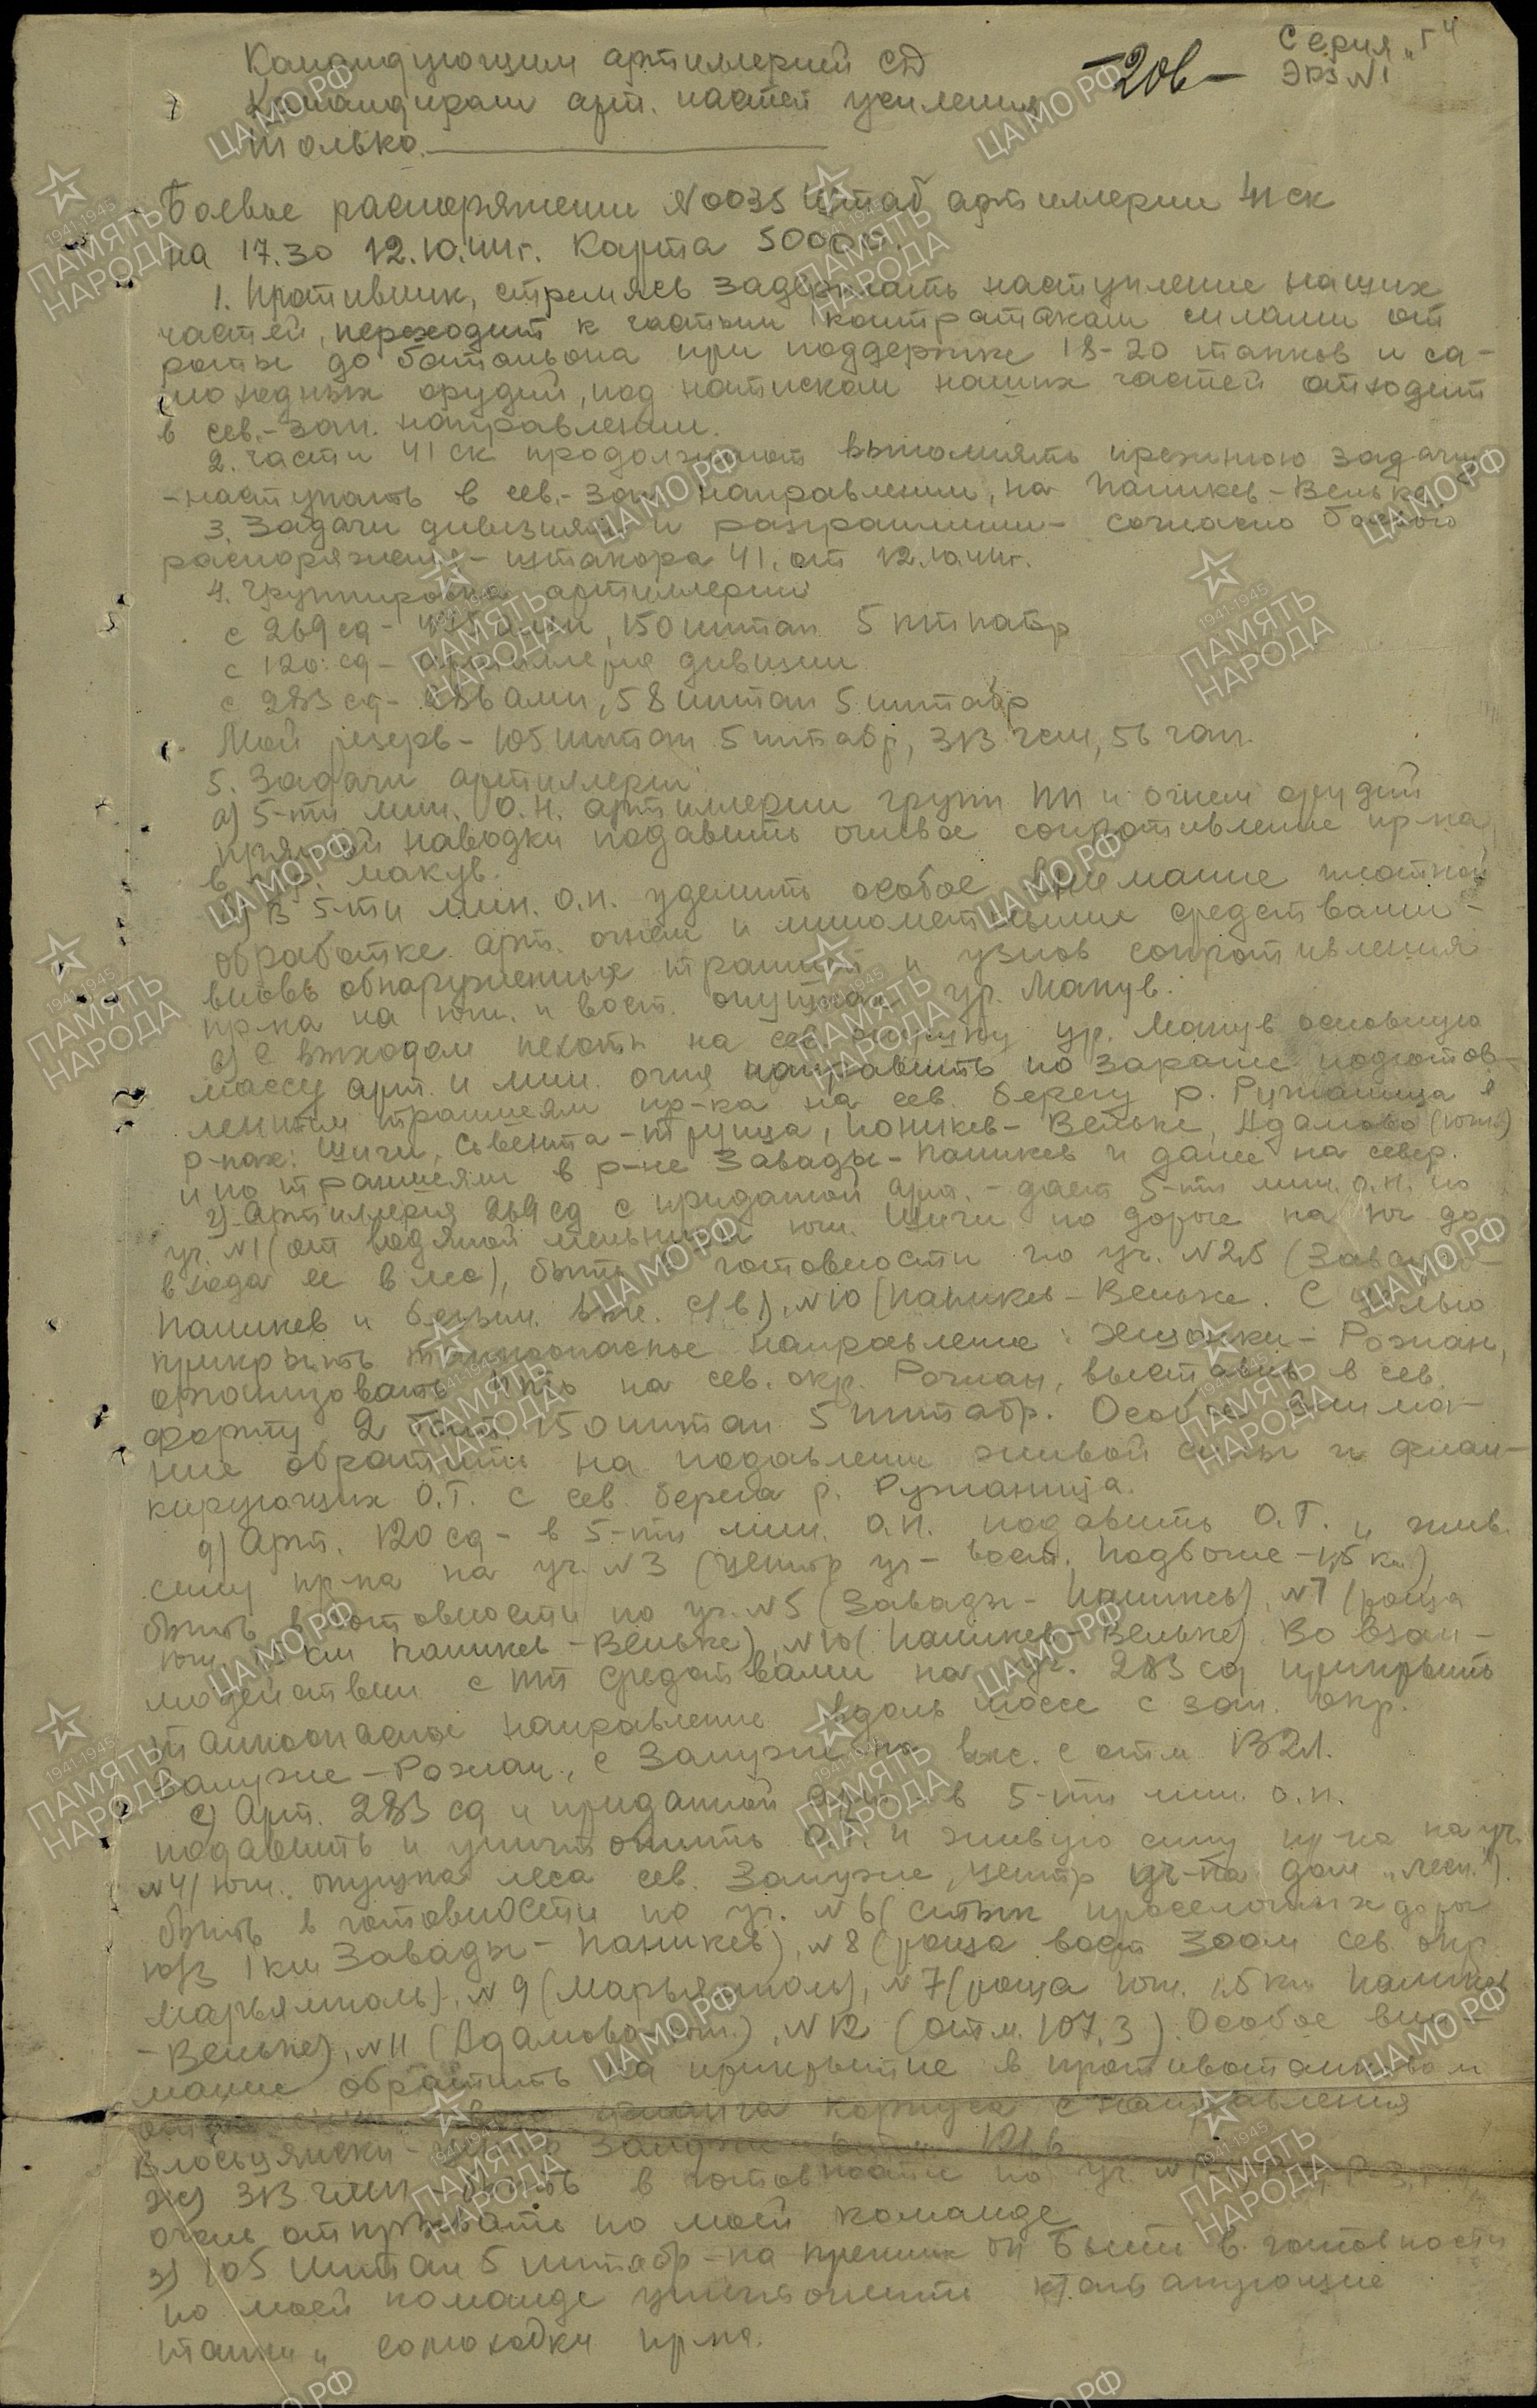 Серия "Г"
Экз N1
-206-
Командующим артиллерией СД
Командирам арт. частей усиления
Только.
Боевое распоряжение N0035 Штаб артиллерии 41 ск
на 17.30 12.10.44г. Карта 50000.
1. Противник, стремясь задержать наступление наших
частей, переходит к частым контратакам силами от
роты до батальона при поддержке 18-20 танков и са-
моходных орудий, под натиском наших частей отходит
в сев.-зап. направлении.
2. Части 41 ск продолжают выполнять прежнюю задачу
-наступать в сев.-зап. направлении, на Паникев-Вельке.
3. Задачи дивизиям и разграничении - согласно боевого
распоряжения - штакора 41. от 12.10.44г.
4. Группировка артиллерии
с 269 сд - 150 иптап 5 иптабр
с 120 сд - артиллерия дивизии
с 283 сд - ап, 58 иптап 5 иптабр
Мой резерв - 105 иптап 5 иптабр, 313 гмп, 56 гап.
5. Задачи артиллерии
а) 5-ти мин. О.Н. артиллерии групп ПП и огнем орудий
прямой наводки подавить огневое сопротивление пр-ка
в ур. Макув.
б) В 5-ти мин. О.Н. уделить особое внимание плотной
обработке арт. огнем и минометными средствами -
вновь обнаруженных траншей и узлов сопротивления
пр-ка на юж. и вост. опушках ур. Макув.
в) С выходом пехоты на сев. опушку ур. Макув основную
массу арт. и мин. огня направить по заранее подготов-
ленным траншеям пр-ка на сев. берегу р. Ружаница в
р-нах: Щиги, Свента-Труйца, Паникев-Вельке, Адамово (юж.)
и по траншеям в р-не Завады-Паникев и далее на север.
г) Артиллерия 269 сд с приданной арт. - дает 5-ти мин. О.Н. по
уч. N1 (от водяной мельницы юж. Щиги по дороге на юг до
входа ее в лес), быть в готовности по уч. N2,5 (Завады-
Паникев и безым. выс. с/в), N10 (Паникев-Вельке. С целью
прикрыть танкоопасное направление: - Рожан,
организовать ПТО на сев. окр. Рожан, выставив в сев.
форту 2 бат. 150 иптап 5 иптабр. Особое внима-
ние обратить на подавление живой силы и флан-
кирующих О.Т. с сев. берега р. Ружаница.
д) Арт. 120 сд - в 5-ти мин. О.Н. подавить О.Т. и жив.
силу пр-ка на уч. N3 (центр уч - вост. Подбоже - 1,5 км),
быть в готовности по уч. N5 (Завады-Паникев), N7 (роща
юж. 1,5 км Паникев-Вельке), N10 (Паникев-Вельке). Во взаи-
модействии с ПТ средствами на уч. 283 сд прикрыть
танкоопасное направление вдоль шоссе с зап. окр.
Залужие - Рожан, с Залужие на выс. с отм.
е) Арт. 283 сд и приданной арт. - в 5-ти мин. О.Н.
подавить и уничтожить О.Т. и живую силу пр-ка на уч.
N4 (юж. опушка леса сев. Залужие, центр уч-ка дом "лесн.").
быть в готовности по уч. N6 (стык проселочных дорог
ю/з 1 км Завады-Паникев), N8 (роща вост 300м сев. окр.
Марьямполь), N9 (Марьямполь), N7 (роща юж. 1,5 км Паникев
-Вельке), N11 (Адамово юж.), N12 (отм. 107,3). Особое вни-
мание обратить на прикрытие в противотанковом
фланга корпуса с направления
Влосьцянски - Залужие -
ж) 313 гмп - быть в готовности по уч.
огонь открывать по моей команде
з) 105 иптап 5 иптабр - на прежних оп быть в готовности
по моей команде уничтожить к/атакующие
танки и самоходки пр-ка.